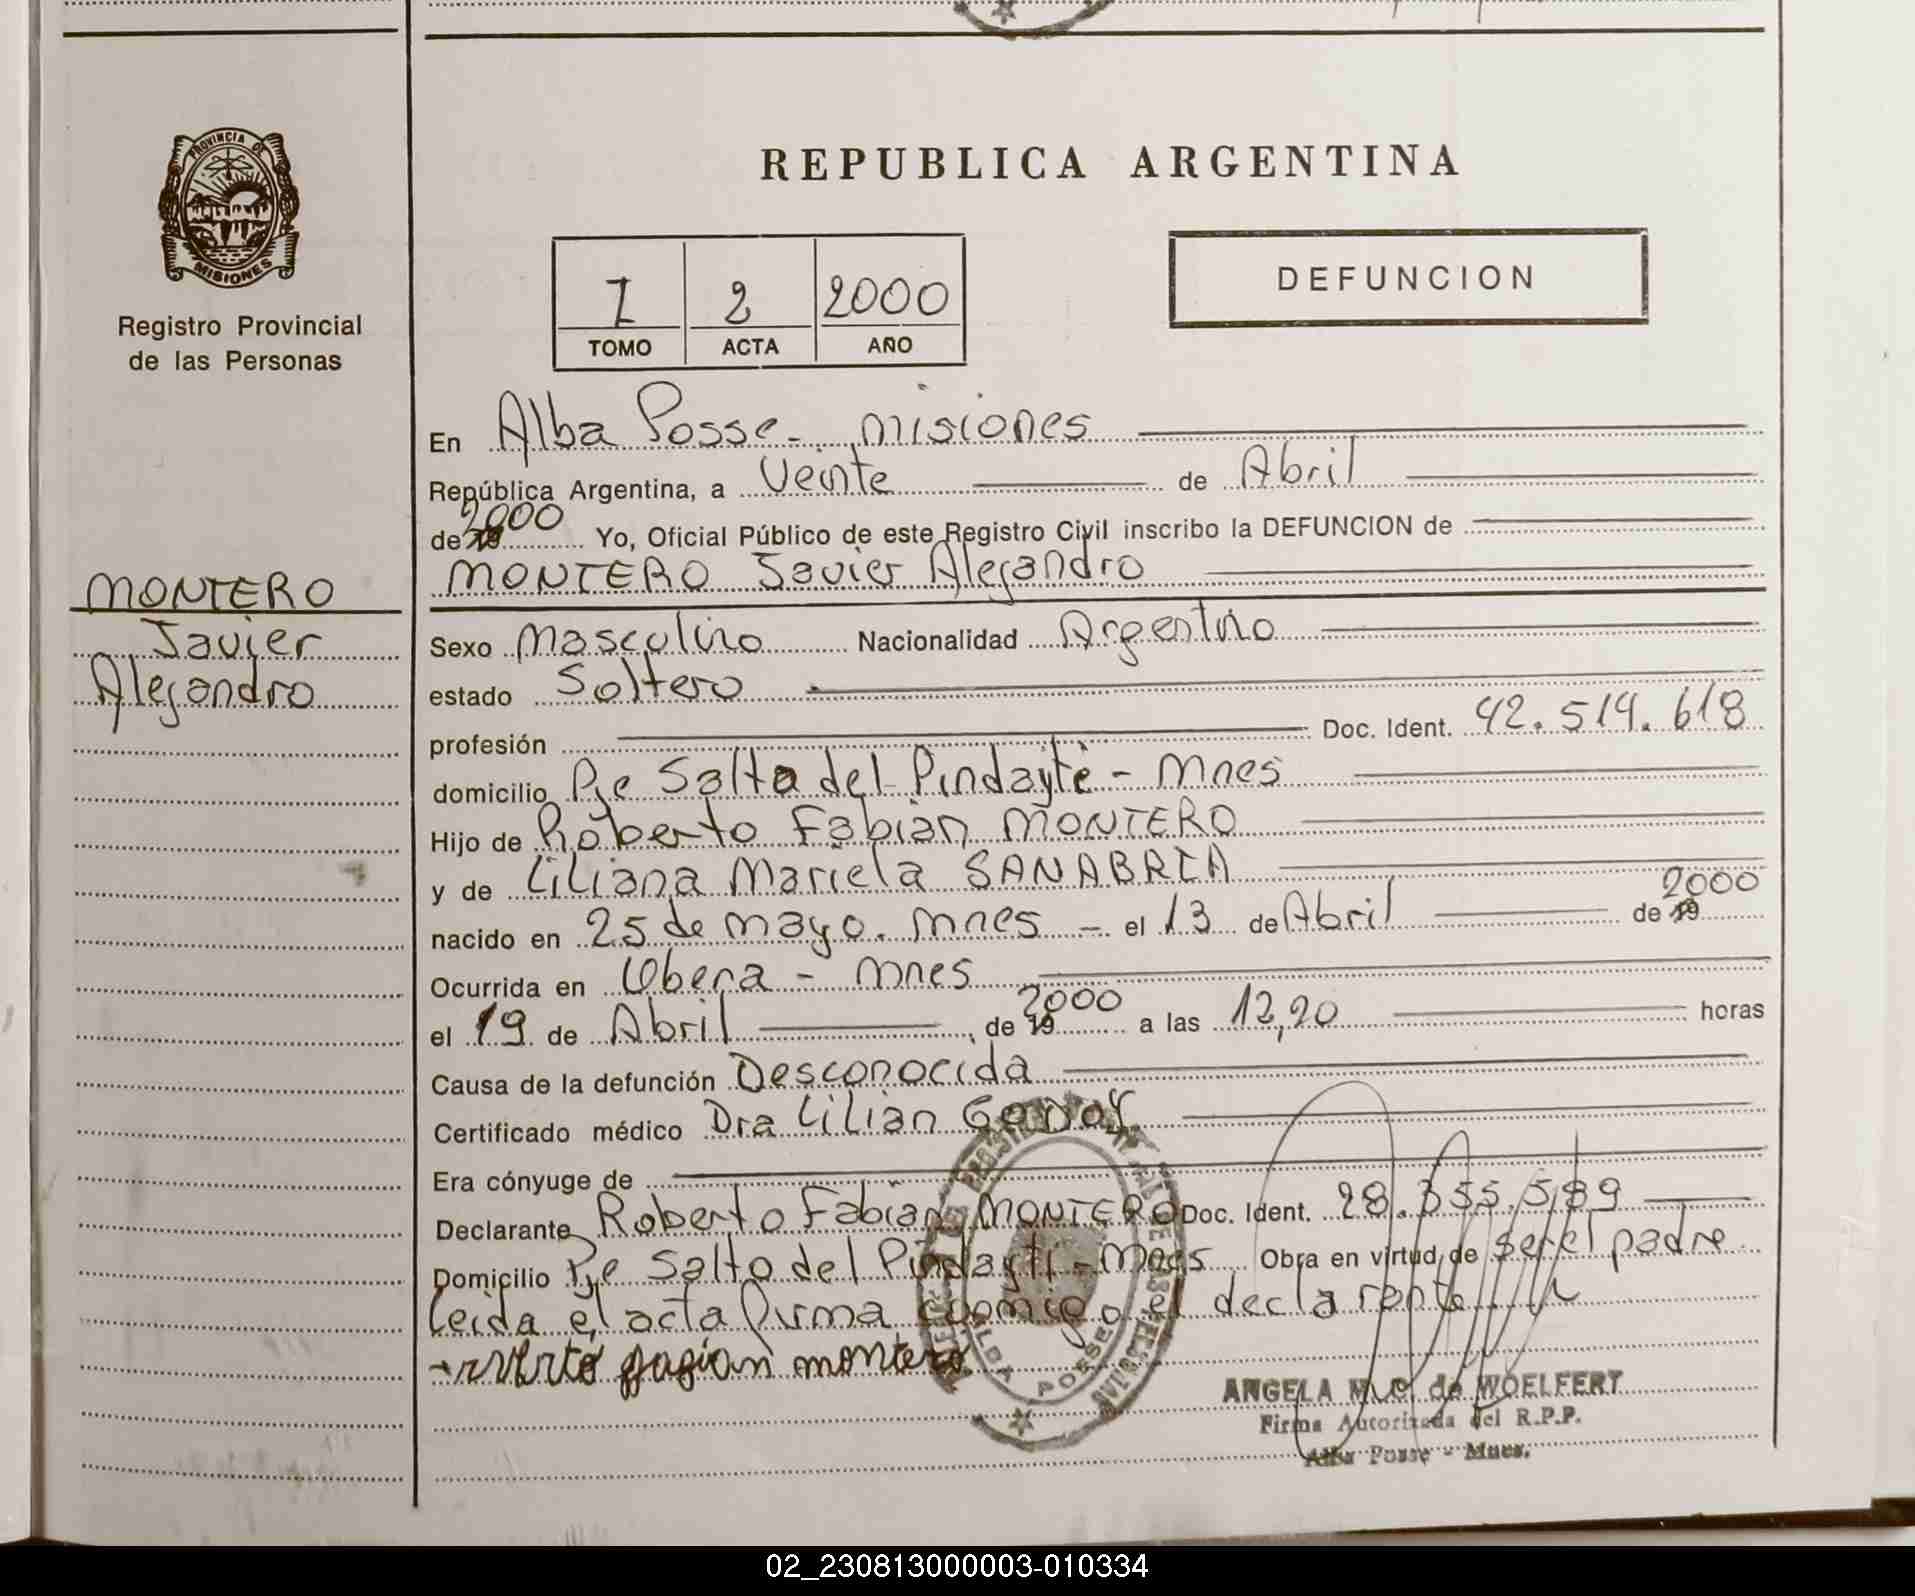 PROVINCIA DE
MISIONES
Registro Provincial
de las Personas
MONTERO
Javier
Alejandro
REPUBLICA ARGENTINA
I 2 2000
TOMO ACTA AÑO
DEFUNCION
En Alba Posse - misiones
República Argentina, a Veinte de Abril
de 19 2000 Yo, Oficial Público de este Registro Civil inscribo la DEFUNCION de
MONTERO Javier Alejandro
Sexo Masculino Nacionalidad Argentino
estado Soltero
profesión Doc. Ident. 42.514.618
domicilio Pje Salto del Pindayti - Mnes
Hijo de Roberto Fabian MONTERO
y de Liliana Mariela SANABRIA
nacido en 25 de mayo. Mnes - el 13 de Abril de 19 2000
Ocurrida en Obera - Mnes
el 19 de Abril, de 19 2000 a las 12,20 horas
Causa de la defunción Desconocida
Certificado médico Dra Lilian Godoy
Era cónyuge de
Declarante Roberto Fabian MONTERO Doc. Ident. 28.355.589
Domicilio Pje Salto del Pindayti - Mnes Obra en virtud de ser el padre
Leida el acta firma conmigo el declarante
montero
POSSE
ANGELA M. C. de WOELFERT
Firma Autorizada del R.P.P.
Alba Posse - Mnes.
02_230813000003-010334